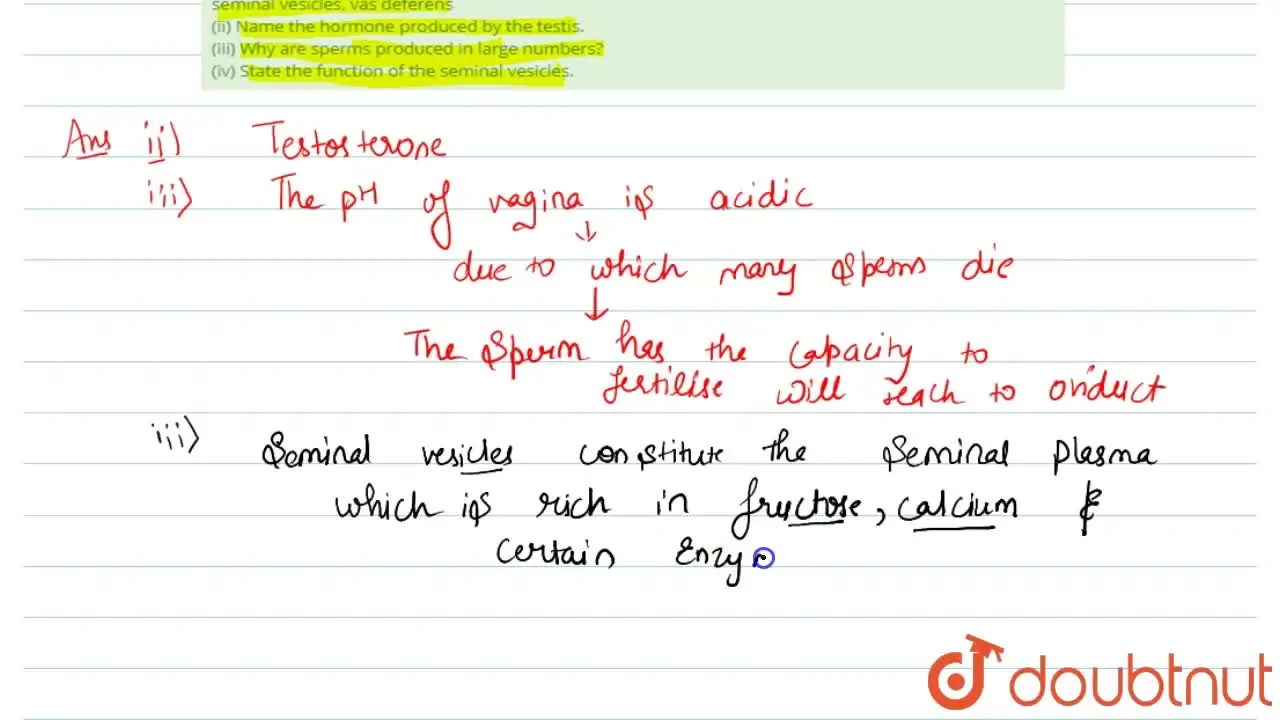 seminal vesicles, vas deferens
(ii) Name the hormone produced by the testis.
(iii) Why are sperms produced in large numbers?
(iv) State the function of the seminal vesicles.
Ans ii) Testosterone
iii) The pH of vagina is acidic
↓
due to which many sperms die
↓
The sperm has the capacity to
fertilise will reach to oviduct
iii) Seminal vesicles constitute the seminal plasma
which is rich in fructose, calcium &
certain Enzy
doubtnut